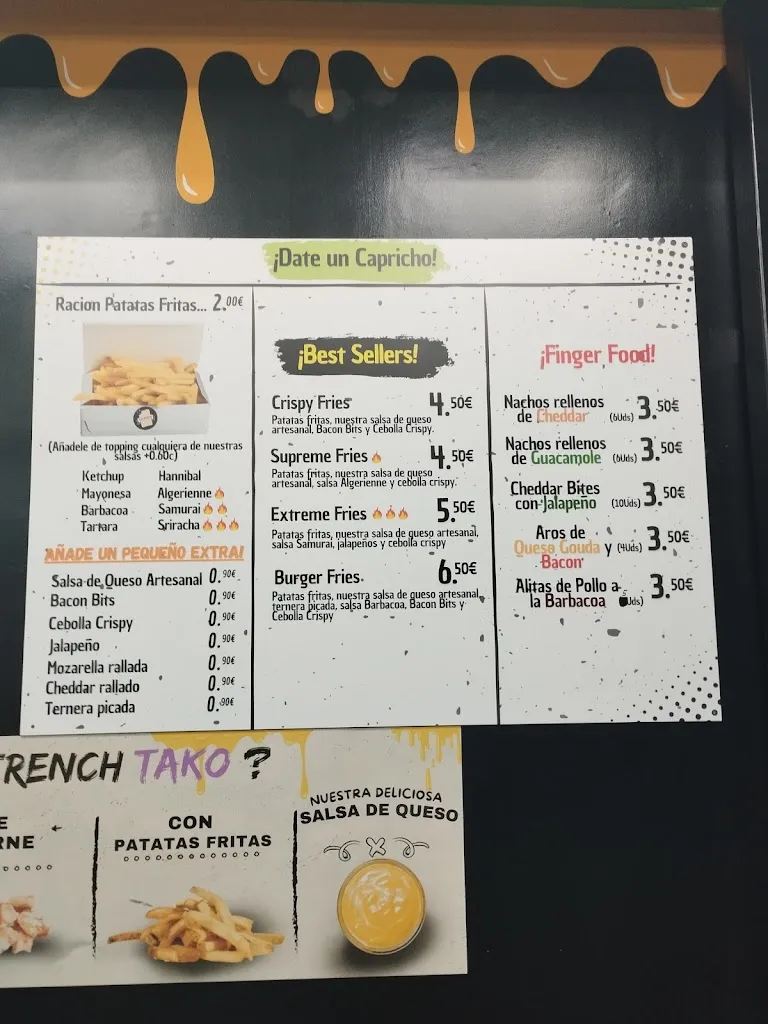 ¡Date un Capricho!
Racion Patatas Fritas... 2.00€
(Añadele de topping cualquiera de nuestras
salsas +0.60c)
Ketchup Hannibal
Mayonesa Algerienne
Barbacoa Samurai
Tartara Sriracha
AÑADE UN PEQUEÑO EXTRA!
Salsa de Queso Artesanal 0.90€
Bacon Bits 0.90€
Cebolla Crispy 0.90€
Jalapeño 0.90€
Mozarella rallada 0.90€
Cheddar rallado 0.90€
Ternera picada 0.90€
¡Best Sellers!
Crispy Fries 4.50€
Patatas fritas, nuestra salsa de queso
artesanal, Bacon Bits y Cebolla Crispy.
Supreme Fries 4.50€
Patatas fritas, nuestra salsa de queso
artesanal, salsa Algerienne y cebolla crispy.
Extreme Fries 5.50€
Patatas fritas, nuestra salsa de queso artesanal,
salsa Samurai, jalapeños y cebolla crispy
Burger Fries 6.50€
Patatas fritas, nuestra salsa de queso artesanal,
ternera picada, salsa Barbacoa, Bacon Bits y
Cebolla Crispy
¡Finger Food!
Nachos rellenos
de Cheddar (6Uds) 3.50€
Nachos rellenos
de Guacamole (6Uds) 3.50€
Cheddar Bites
con Jalapeño (10Uds) 3.50€
Aros de
Queso Gouda y (4Uds) 3.50€
Bacon
Alitas de Pollo a
la Barbacoa Uds) 3.50€
FRENCH TAKO ?
E
RNE
CON
PATATAS FRITAS
NUESTRA DELICIOSA
SALSA DE QUESO